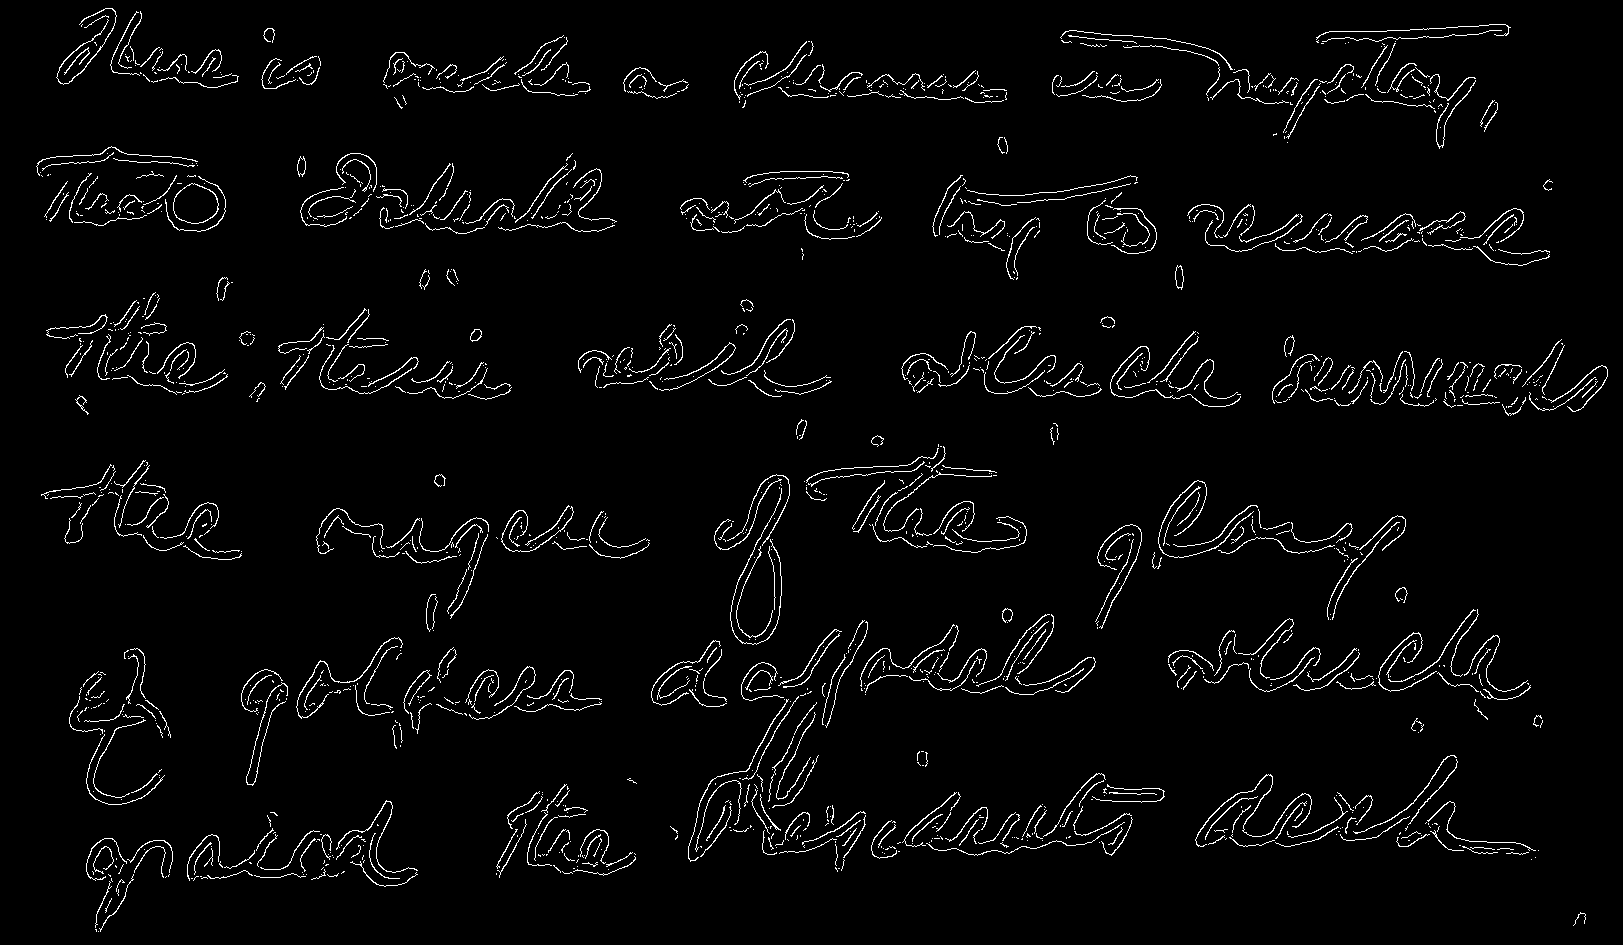 There is such a charm in mystery,
that I shall not try to remove
the thin veil which surrounds
the origin of the glory
of golden daffodils which
graced the President's desk